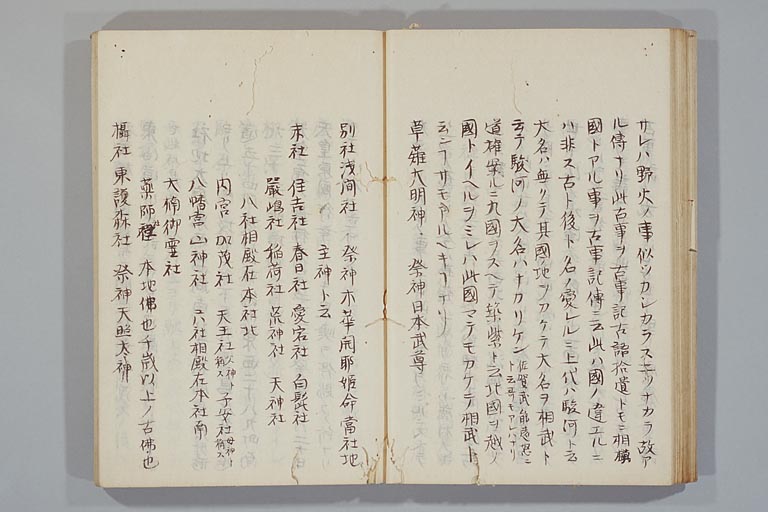 サレハ野火ノ事似ツカシカラス
ル傳ナリ此古事ヲ古事記古語拾遺トモニ相模
國トアル事ヲ古事記傳ニ云此ハ國ノ違エルニ
ハ非ス古ト後ト名ノ變レルニ上代ハ駿河ト云
大名ハ無クテ其國ノ地ヲカケテ大名ヲ相武ト
云テ駿河ノ大名ハナカリケン
道按案ルニ九國ヲスヘテ築紫ト云北國ヲ越ノ
國トイヘルヲミレハ此國マテモカケテ相武ト
云シ事サモアルヘキ事ナリ
草薙大明神 祭神日本武尊
別社浅間社 祭神木華開耶姫命當社地
主神ト云
末社 住吉社 春日社 愛宕社 白髭社
嚴嶋社 稲荷社 荒神社 天神社
八社相殿在本社北
内宮 加茂社 天王社 子安社
八幡宮 山神社 六社相殿在本社南
大楠御霊社
薬師 本地佛也千歳以上ノ古佛也
攝社東護森社 祭神天照太神